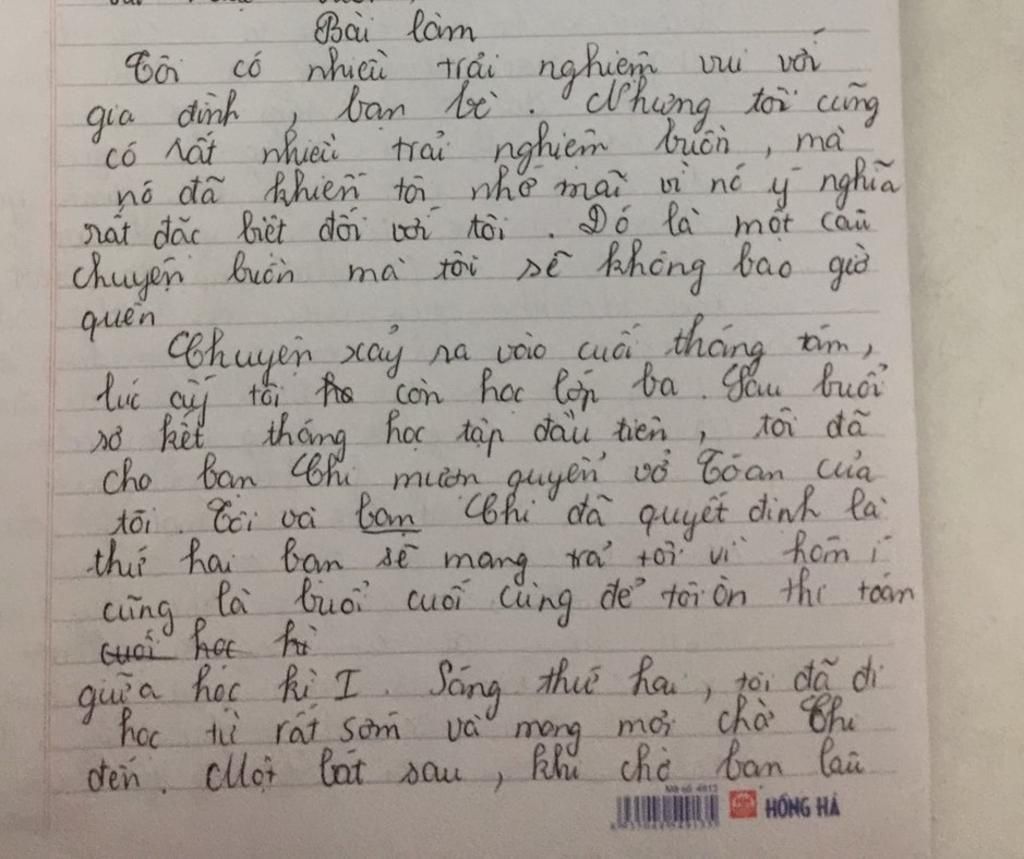 Bài làm
Tôi có nhiều trải nghiệm vui với
gia đình, bạn bè. Nhưng tôi cũng
có rất nhiều trải nghiệm buồn, mà
nó đã khiến tôi nhớ mãi vì nó ý nghĩa
rất đặc biệt đối với tôi. Đó là một câu
chuyện buồn mà tôi sẽ không bao giờ
quên
Chuyện xảy ra vào cuối tháng tám,
lúc ấy tôi còn học lớp ba. Sau buổi
sơ kết tháng học tập đầu tiên, tôi đã
cho bạn Chi mượn quyển vở Tóan của
tôi. Tôi và bạn Chi đã quyết định là
thứ hai bạn sẽ mang trả tôi vì hôm
cũng là buổi cuối cùng để tôi ôn thi toán
cuối học kì
giữa học kì I. Sáng thứ hai, tôi đã đi
học từ rất sớm và mong mỏi chờ Chi
đến. Một lát sau, khi chờ bạn lâu
Mã số: 4812
HỒNG HÀ